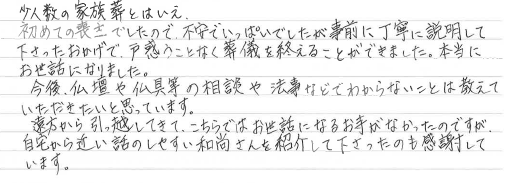 少人数の家族葬とはいえ、
初めての喪主でしたので、不安でいっぱいでしたが事前に丁寧に説明して
下さったおかげで、戸惑うことなく葬儀を終えることができました。本当に
お世話になりました。
今後、仏壇や仏具等の相談や法事などでわからないことは教えて
いただきたいと思っています。
遠方から引っ越してきて、こちらではお世話になるお寺がなかったのですが、
自宅から近い話のしやすい和尚さんを紹介して下さったのも感謝して
います。